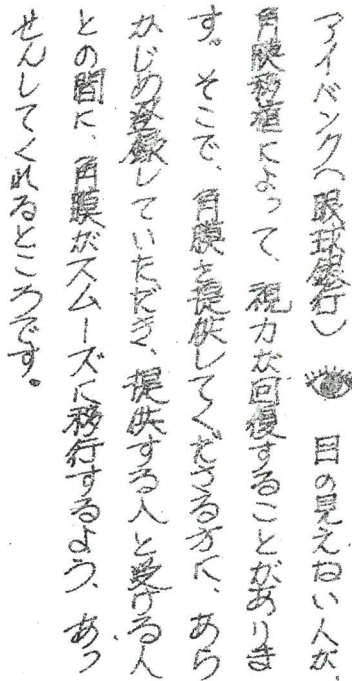 アイバンク(眼球銀行) 目の見えない人が、
角膜移植によって、視力が回復することがありま
す。そこで、角膜を提供してくださる方に、あら
かじめ登録していただき、提供する人と受ける人
との間に、角膜がスムーズに移行するよう、あっ
せんしてくれるところです。